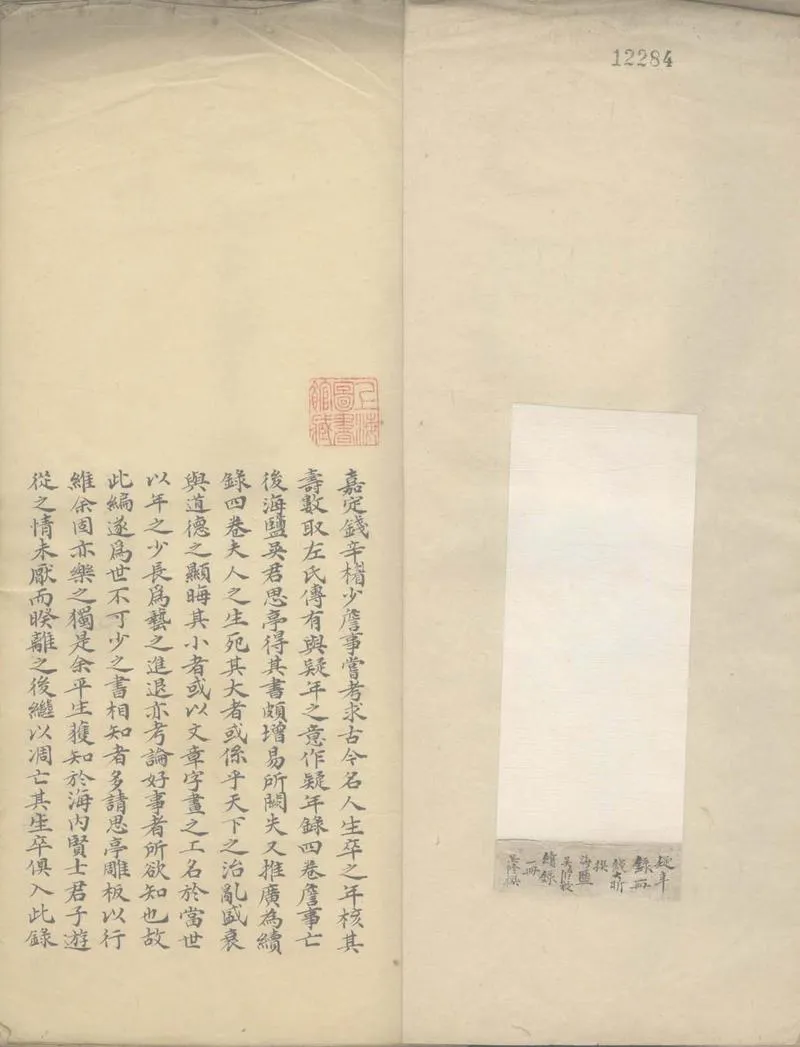 12284
疑年
錄四
錢大昕
撰
海鹽
續錄
一冊
上海
圖書
館藏
嘉定錢辛楣少詹事嘗考求古今名人生卒之年核其
壽數取左氏傳有與疑年之意作疑年錄四卷詹事亡
後海鹽吳君思亭得其書頗增易所闕失又推廣為續
錄四卷夫人之生死其大者或係乎天下之治亂盛衰
與道德之顯晦其小者或以文章字畫之工名於當世
以年之少長爲藝之進退亦考論好事者所欲知也故
此編遂爲世不可少之書相知者多請思亭雕板以行
維余固亦樂之獨是余平生獲知於海內賢士君子遊
從之情未厭而暌離之後繼以凋亡其生卒俱入此錄